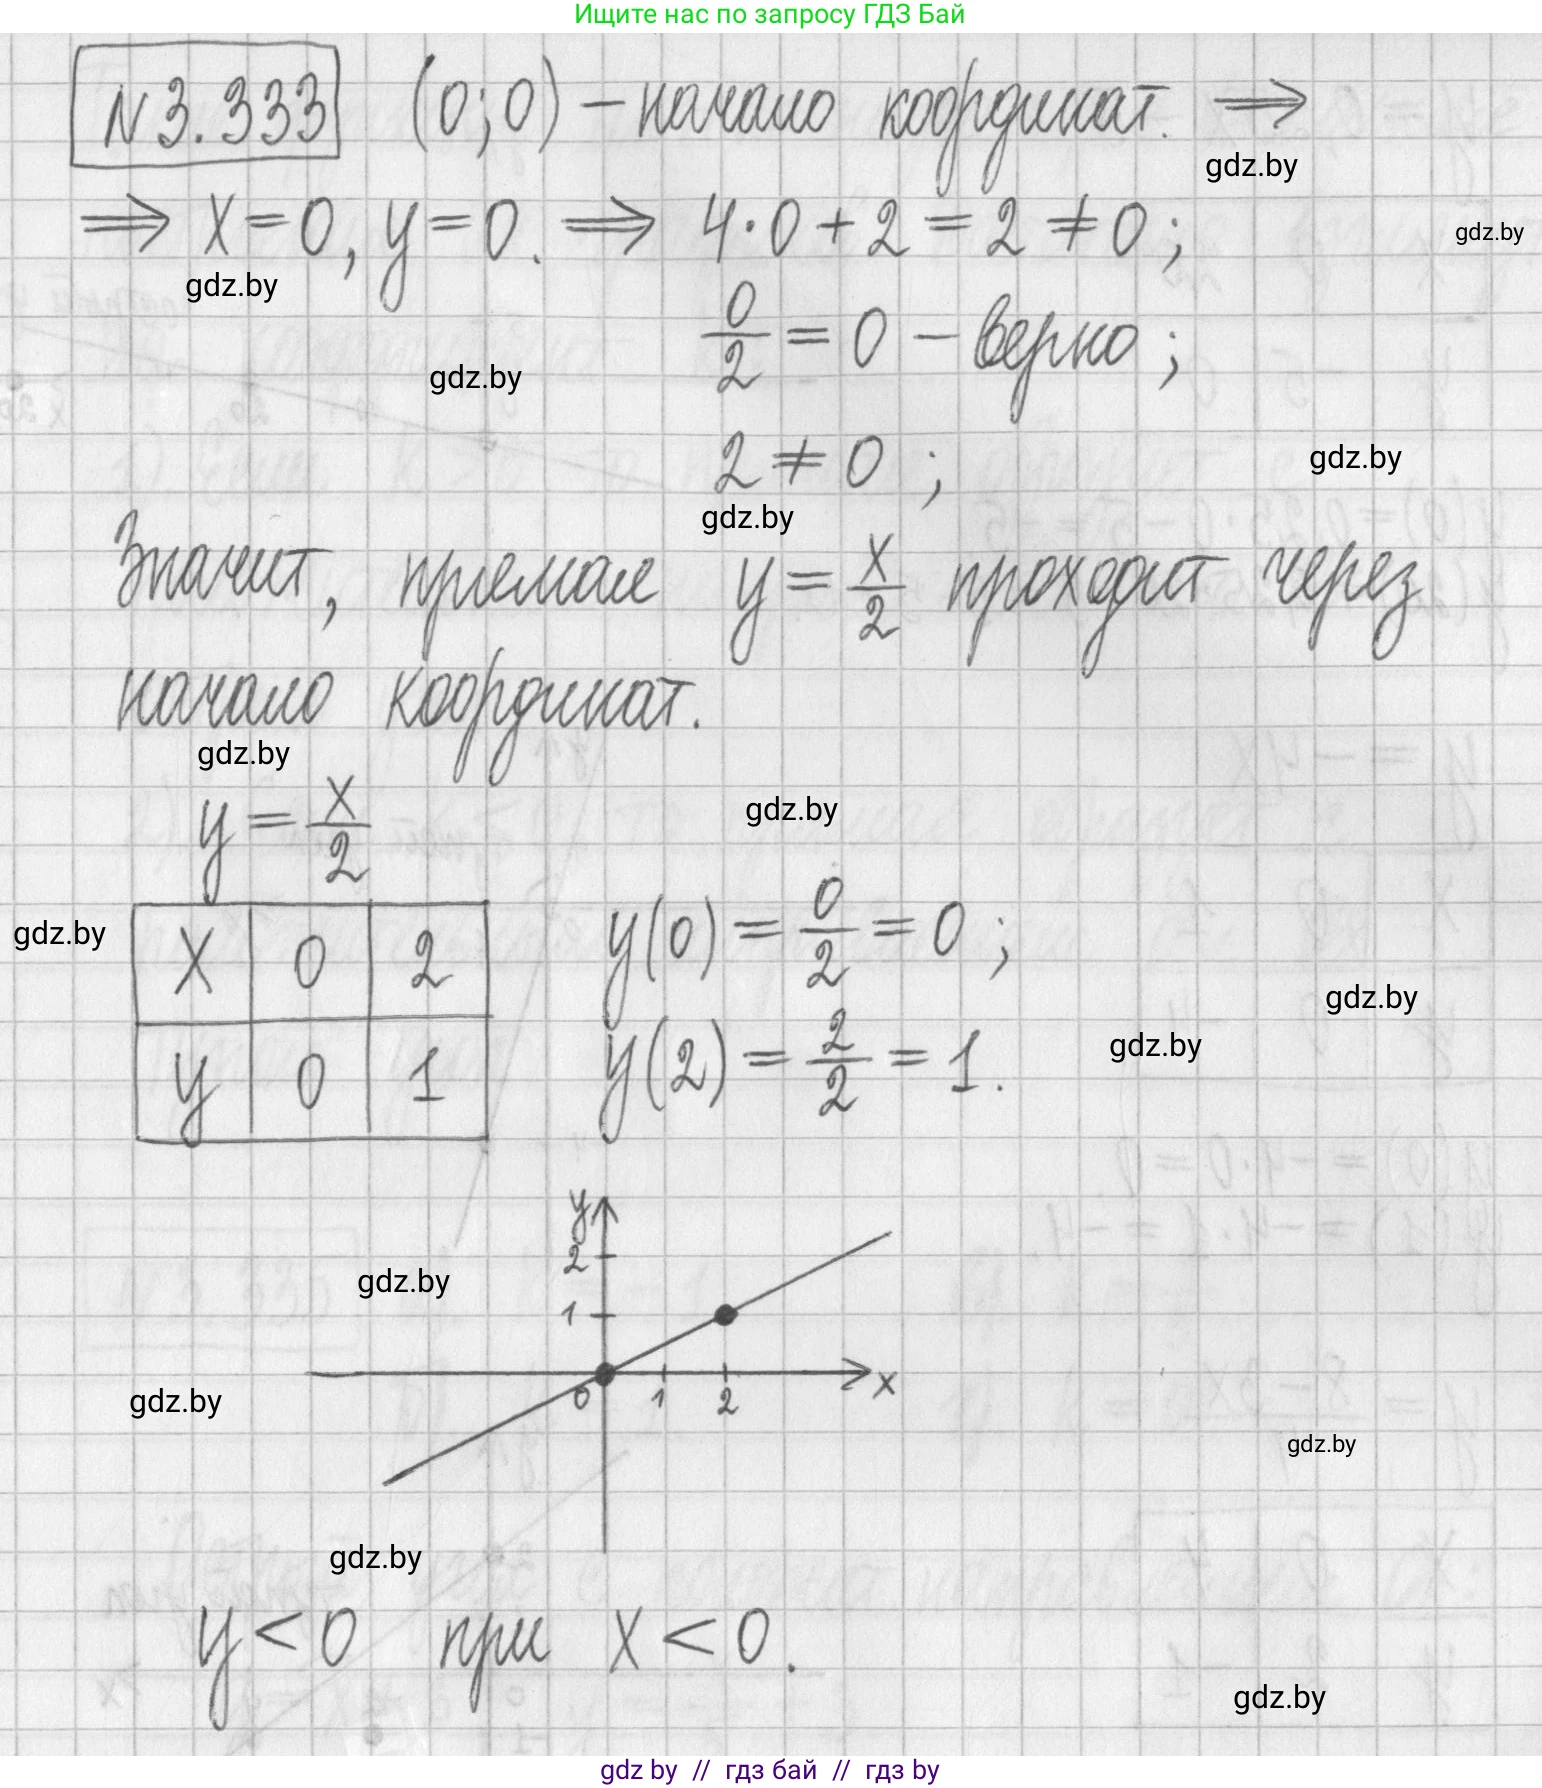 Ищите нас по запросу ГДЗ Бай
№3.333 (0;0) – начало координат. ⇒
gdz.by
⇒ x = 0, y = 0. ⇒ 4·0 + 2 = 2 ≠ 0 ;
gdz.by
gdz.by
0/2 = 0 – верно ;
gdz.by
2 ≠ 0 ;
gdz.by
gdz.by
Значит, прямая y = x/2 проходит через
начало координат.
gdz.by
y = x/2
gdz.by
gdz.by
x 0 2
y(0) = 0/2 = 0 ;
gdz.by
gdz.by
y 0 1
y(2) = 2/2 = 1.
y
2
gdz.by
1
x
0 1 2
gdz.by
gdz.by
gdz.by
y < 0 при x < 0.
gdz.by
gdz by // гдз бай // гдз by